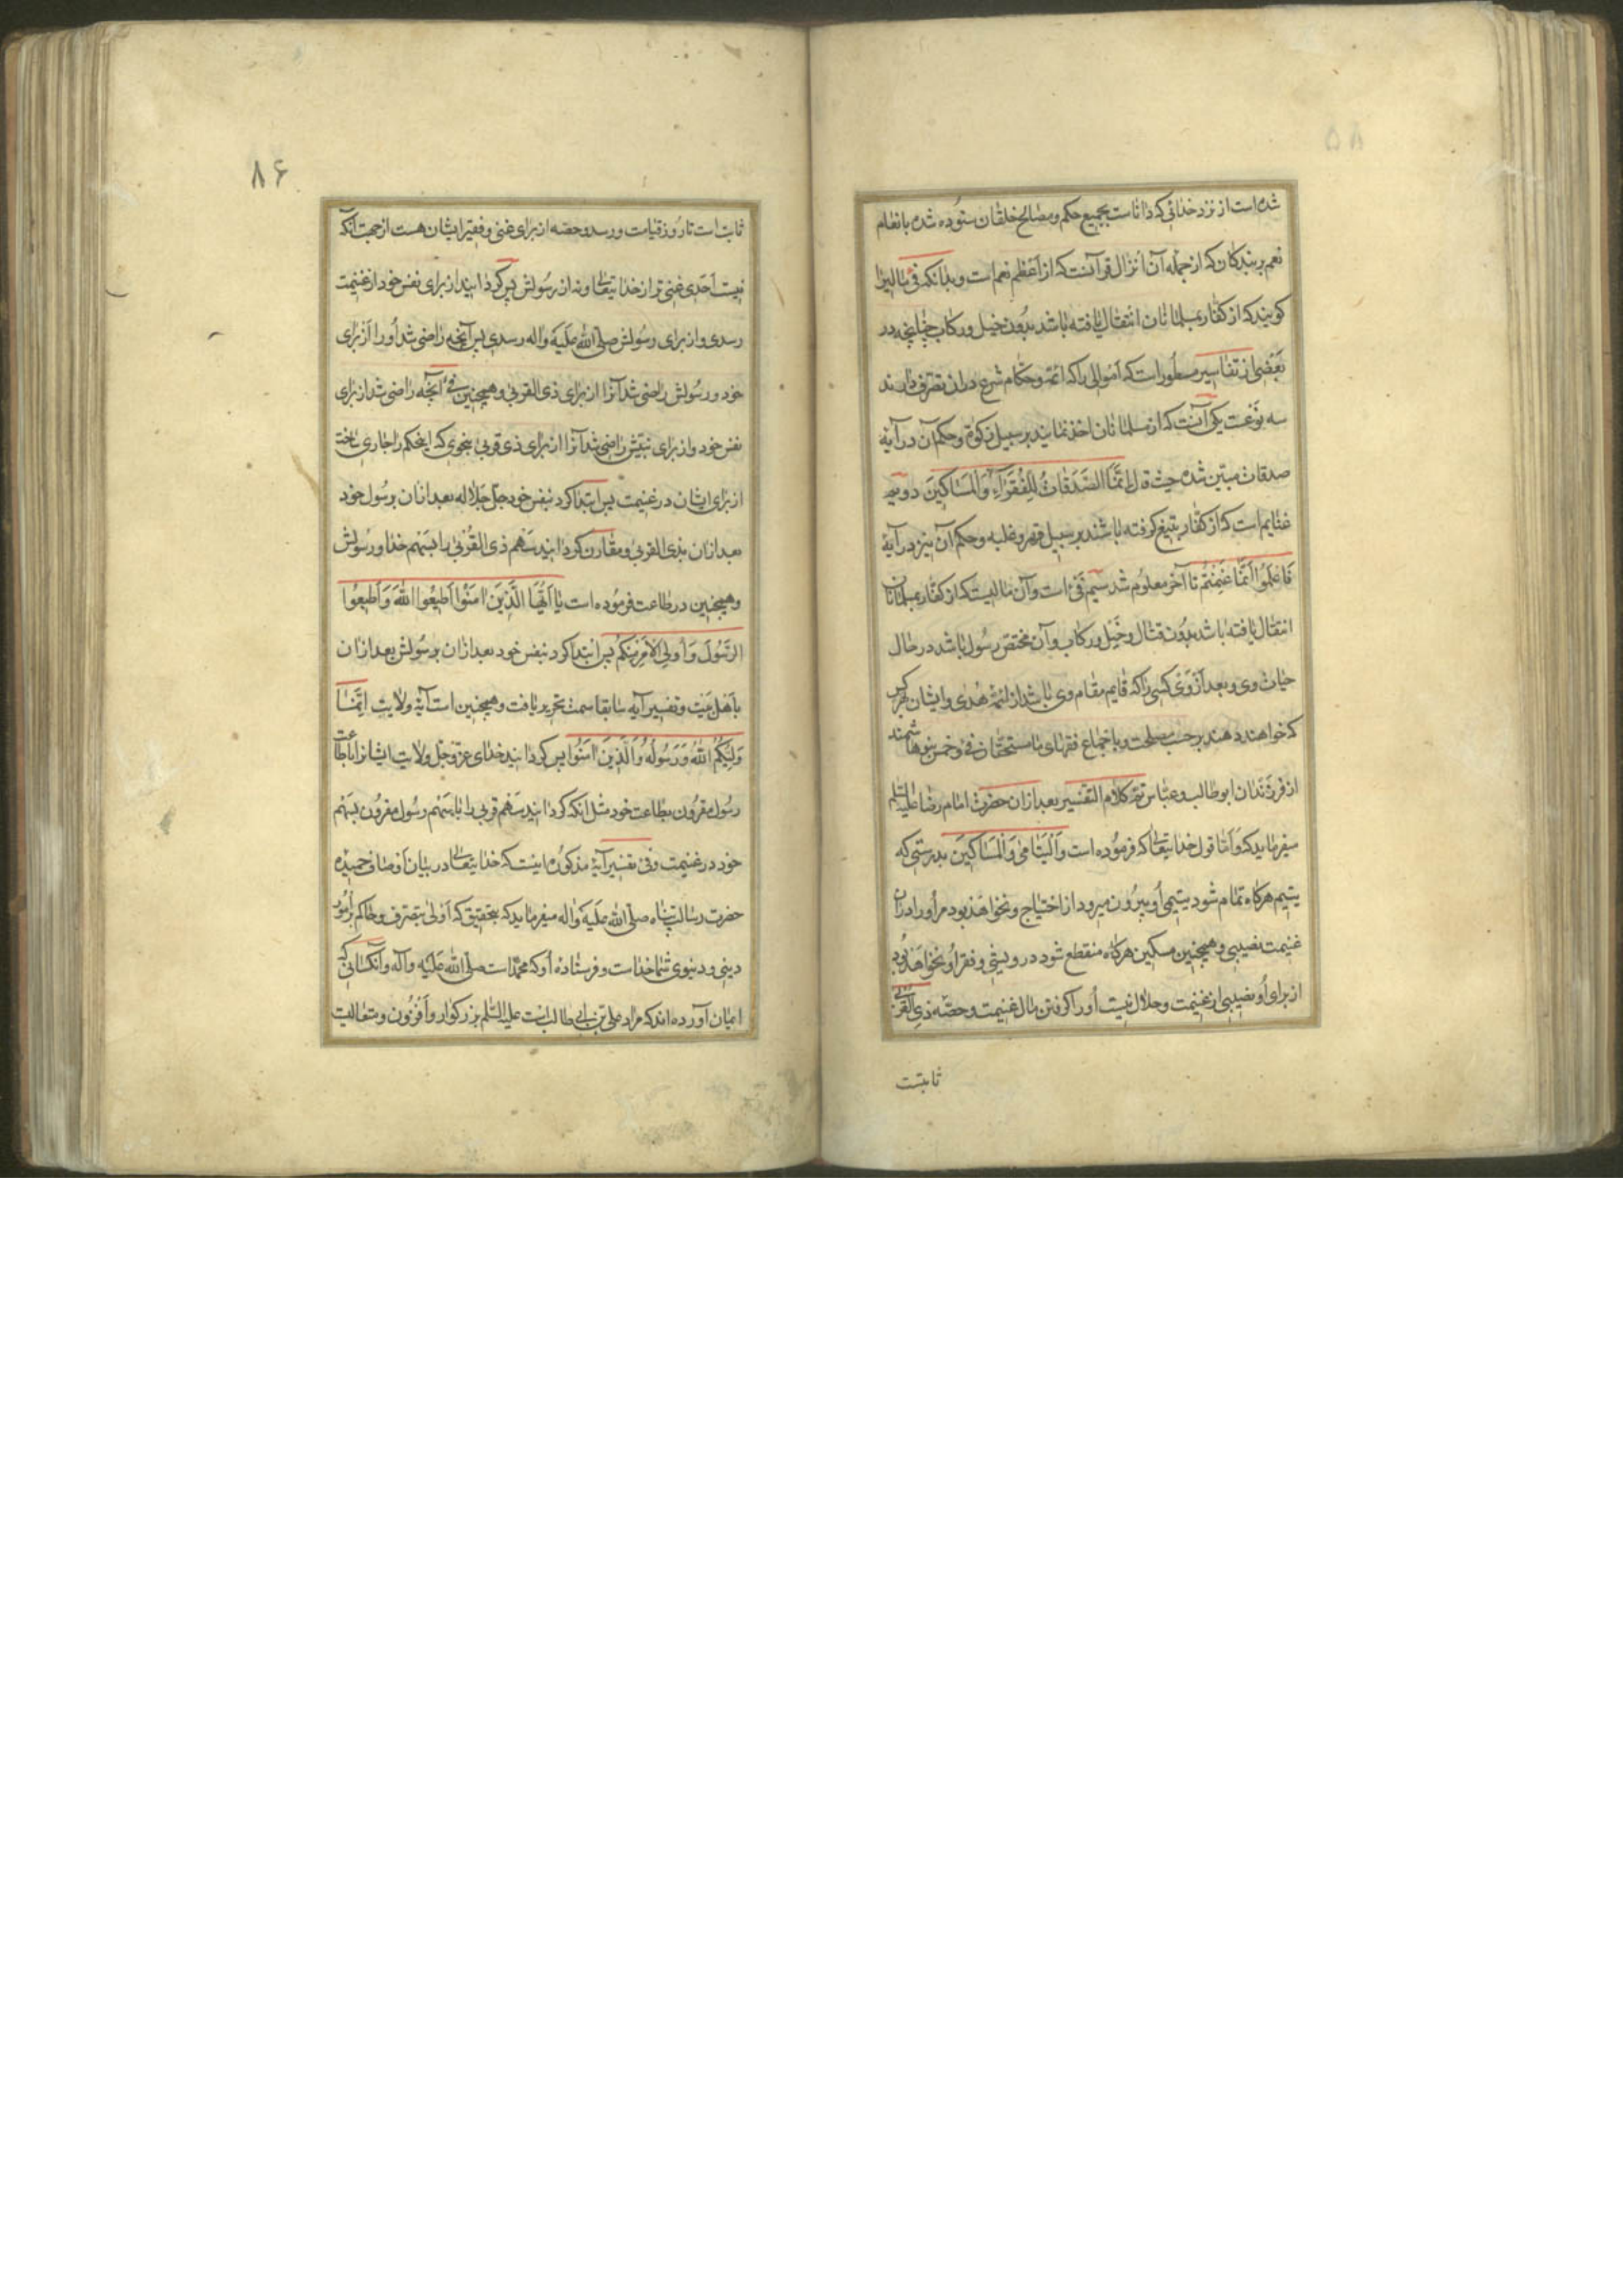 شده است از نزد خدائی که داناست بجمیع حکم و مصالح خلقان ستوده شده بانعام
نعم بر بندکان که از جمله آن انزال قرآنست که از اعظم نعم است و بدانکه فئ مالیرا
کویند که از کفار بمسلمانان انتقال یافته باشد بدون خیل و رکاب چنانچه در
بعضی از تفاسیر مسطور است که اموالی را که ائمه و حکام شرع در ان تصرف دارند
سه نوعست یکی آنست که از مسلمانان اخذ نمایند بر سبیل زکوة و حکم آن در آیۀ
صدقات مبین شده حیث قال انَّمَا الصَّدَقَاتُ لِلْفُقَرَآءِ وَالْمَسَاكِینَ دویم
غنایم است که از کفار بتیغ کرفته باشند بر سبیل قهر و غلبه و حکم آن نیز در آیۀ
فَاعْلَمُوا انَّمَا غَنِمْتُمْ تا آخر معلوم شد سیم فئ است و آن مالیست که از کفار بمسلمانان
انتقال یافته باشد بدون قتال و خیل و رکاب و آن مختص رسول باشد در حال
حیات وی و بعد از وی کسی را که قایم مقام وی باشد از ائمۀ هُدی و ایشان بهر کس
که خواهند دهند بر حسب مصلحت و باجماع فقهای ما مستحقان فئ و خمس بنو هاشمند
از فرزندان ابوطالب و عباس تم کلام التفسیر بعد ازان حضرت امام رضا علیه السلم
میفرماید که و اما قول خدایتعالی که فرموده است وَالْیَتَامیٰ وَالْمَسَاكِینَ بدرستی که
یتیم هرکاه تمام شود یتیمی او بیرون میرود از احتیاج و نخواهد بود مر او را در ان
غنیمت نصیبی و همچنین مسکین هرکاه منقطع شود درویشی و فقر او نخواهد بود
از برای او نصیبی از غنیمت و حلال نیست او را کرفتن مال غنیمت و حصّه ذی القربی
ثابتست
۸۶
ثابت است تا روز قیامت و رسد و حصه از برای غنی و فقیر ایشان هست از جهت آنکه
نیست اَحَدی غنی تر از خدایتعالی و نه از رسولش پس کردانید از برای نفس خود از غنیمت
رسدی و از برای رسولش صلی الله علیه و اله رسدی پس آنچه راضی شد او را از برای
خود و رسولش راضی شد آنرا از برای ذی القربی و همچنین فئ آنچه راضی شد از برای
نفس خود و از برای نبیّش راضی شد آنرا از برای ذی قربی بنحوی که اینحکم را جاری ساخت
از برای ایشان در غنیمت پس ابتدا کرد بنفس خود جلّ جلاله بعد ازان برسول خود
بعد ازان بذی القربی و مقارن کردانید سهم ذی القُربیٰ را بسهم خدا و رسولش
و همچنین در طاعت فرموده است یَا اَیُّهَا الَّذِینَ اٰمَنُوْا اَطِیْعُوا اللهَ وَ اَطِیعُوا
الرَّسُولَ وَ اُولِی الْاَمْرِ مِنْکُمْ پس ابتدا کرد بنفس خود بعد ازان برسولش بعد ازان
باهل بیت و تفسیر آیه سابقا سمت تحریر یافت و همچنین است آیۀ ولایت اِنَّمَا
وَلِیُّکُمُ اللهُ وَ رَسُولُهُ وَ الَّذِینَ اٰمَنُوا پس کردانید خدای عز و جل ولایت ایشانرا باطاعت
رسول مقرون بطاعت خود مثل انکه کردانید سهم قربی را با سهم رسول مقرون بسهم
خود در غنیمت و فئ تفسیر آیۀ مذکور اینست که خدایتعالی در بیان اوصاف حمیده
حضرت رسالت پناه صلی الله علیه و اله میفرماید که بتحقیق که اولی بتصرف و حاکم بر امور
دینی و دنیوی شما خداست و فرستاده او که محمد است صلی الله علیه و آله و آنکسانی که
ایمان آورده اند که مراد علی بن ابی طالب است علیه السلم بزرکوار و افزون و متعالیست